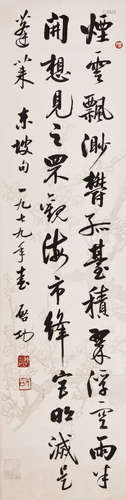 煙雲飄渺欝孤臺積翠浮空雨半
開想見之罘觀海市絳宫明滅是
蓬萊 東坡句 一九七九年春 啓功